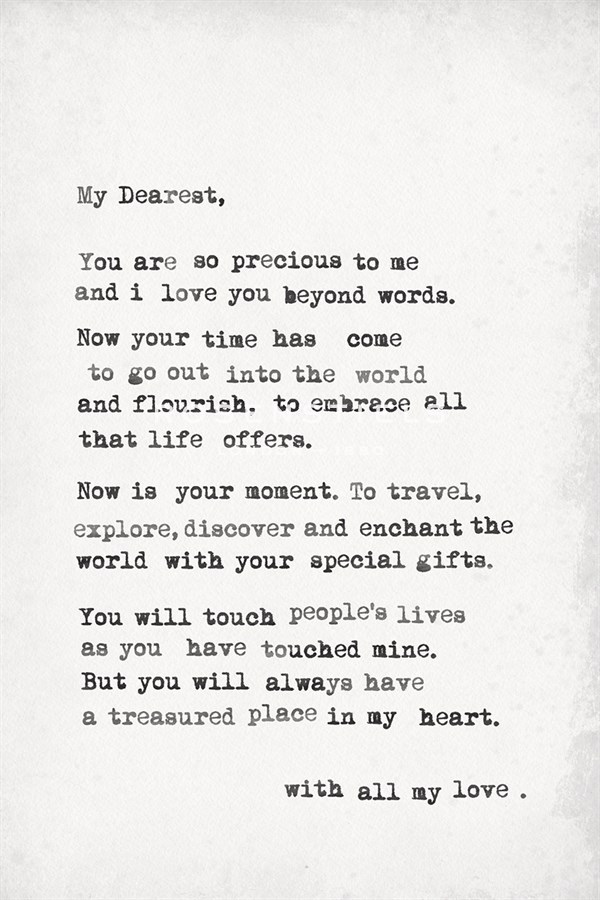 My Dearest,
You are so precious to me
and i love you beyond words.
Now your time has come
to go out into the world
and flourish. to embrace all
that life offers.
Now is your moment. To travel,
explore, discover and enchant the
world with your special gifts.
You will touch people's lives
as you have touched mine.
But you will always have
a treasured place in my heart.
with all my love .